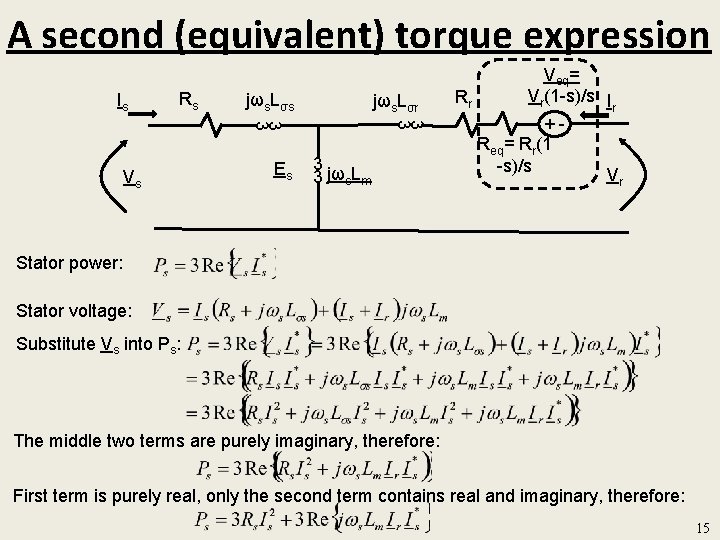 A second (equivalent) torque expression
Is Rs jωsLσs jωsLσr Rr Veq=
Vr(1-s)/s Ir
+ -
Req= Rr(1
-s)/s
Vs Es jωsLm Vr
Stator power: Ps = 3 Re{Vs Is*}
Stator voltage: Vs = Is(Rs + jωsLσs) + (Is + Ir)jωsLm
Substitute Vs into Ps: Ps = 3 Re{Vs Is*} = 3 Re{Is(Rs + jωsLσs) + (Is + Ir)jωsLm Is*}
= 3 Re{Rs Is Is* + jωsLσs Is Is* + jωsLm Is Is* + jωsLm Ir Is*)}
= 3 Re{Rs Is² + jωsLσs Is² + jωsLm Is² + jωsLm Ir Is*)}
The middle two terms are purely imaginary, therefore:
Ps = 3 Re{Rs Is² + jωsLm Ir Is*}
First term is purely real, only the second term contains real and imaginary, therefore:
Ps = 3Rs Is² + 3 Re{jωsLm Ir Is*}
15